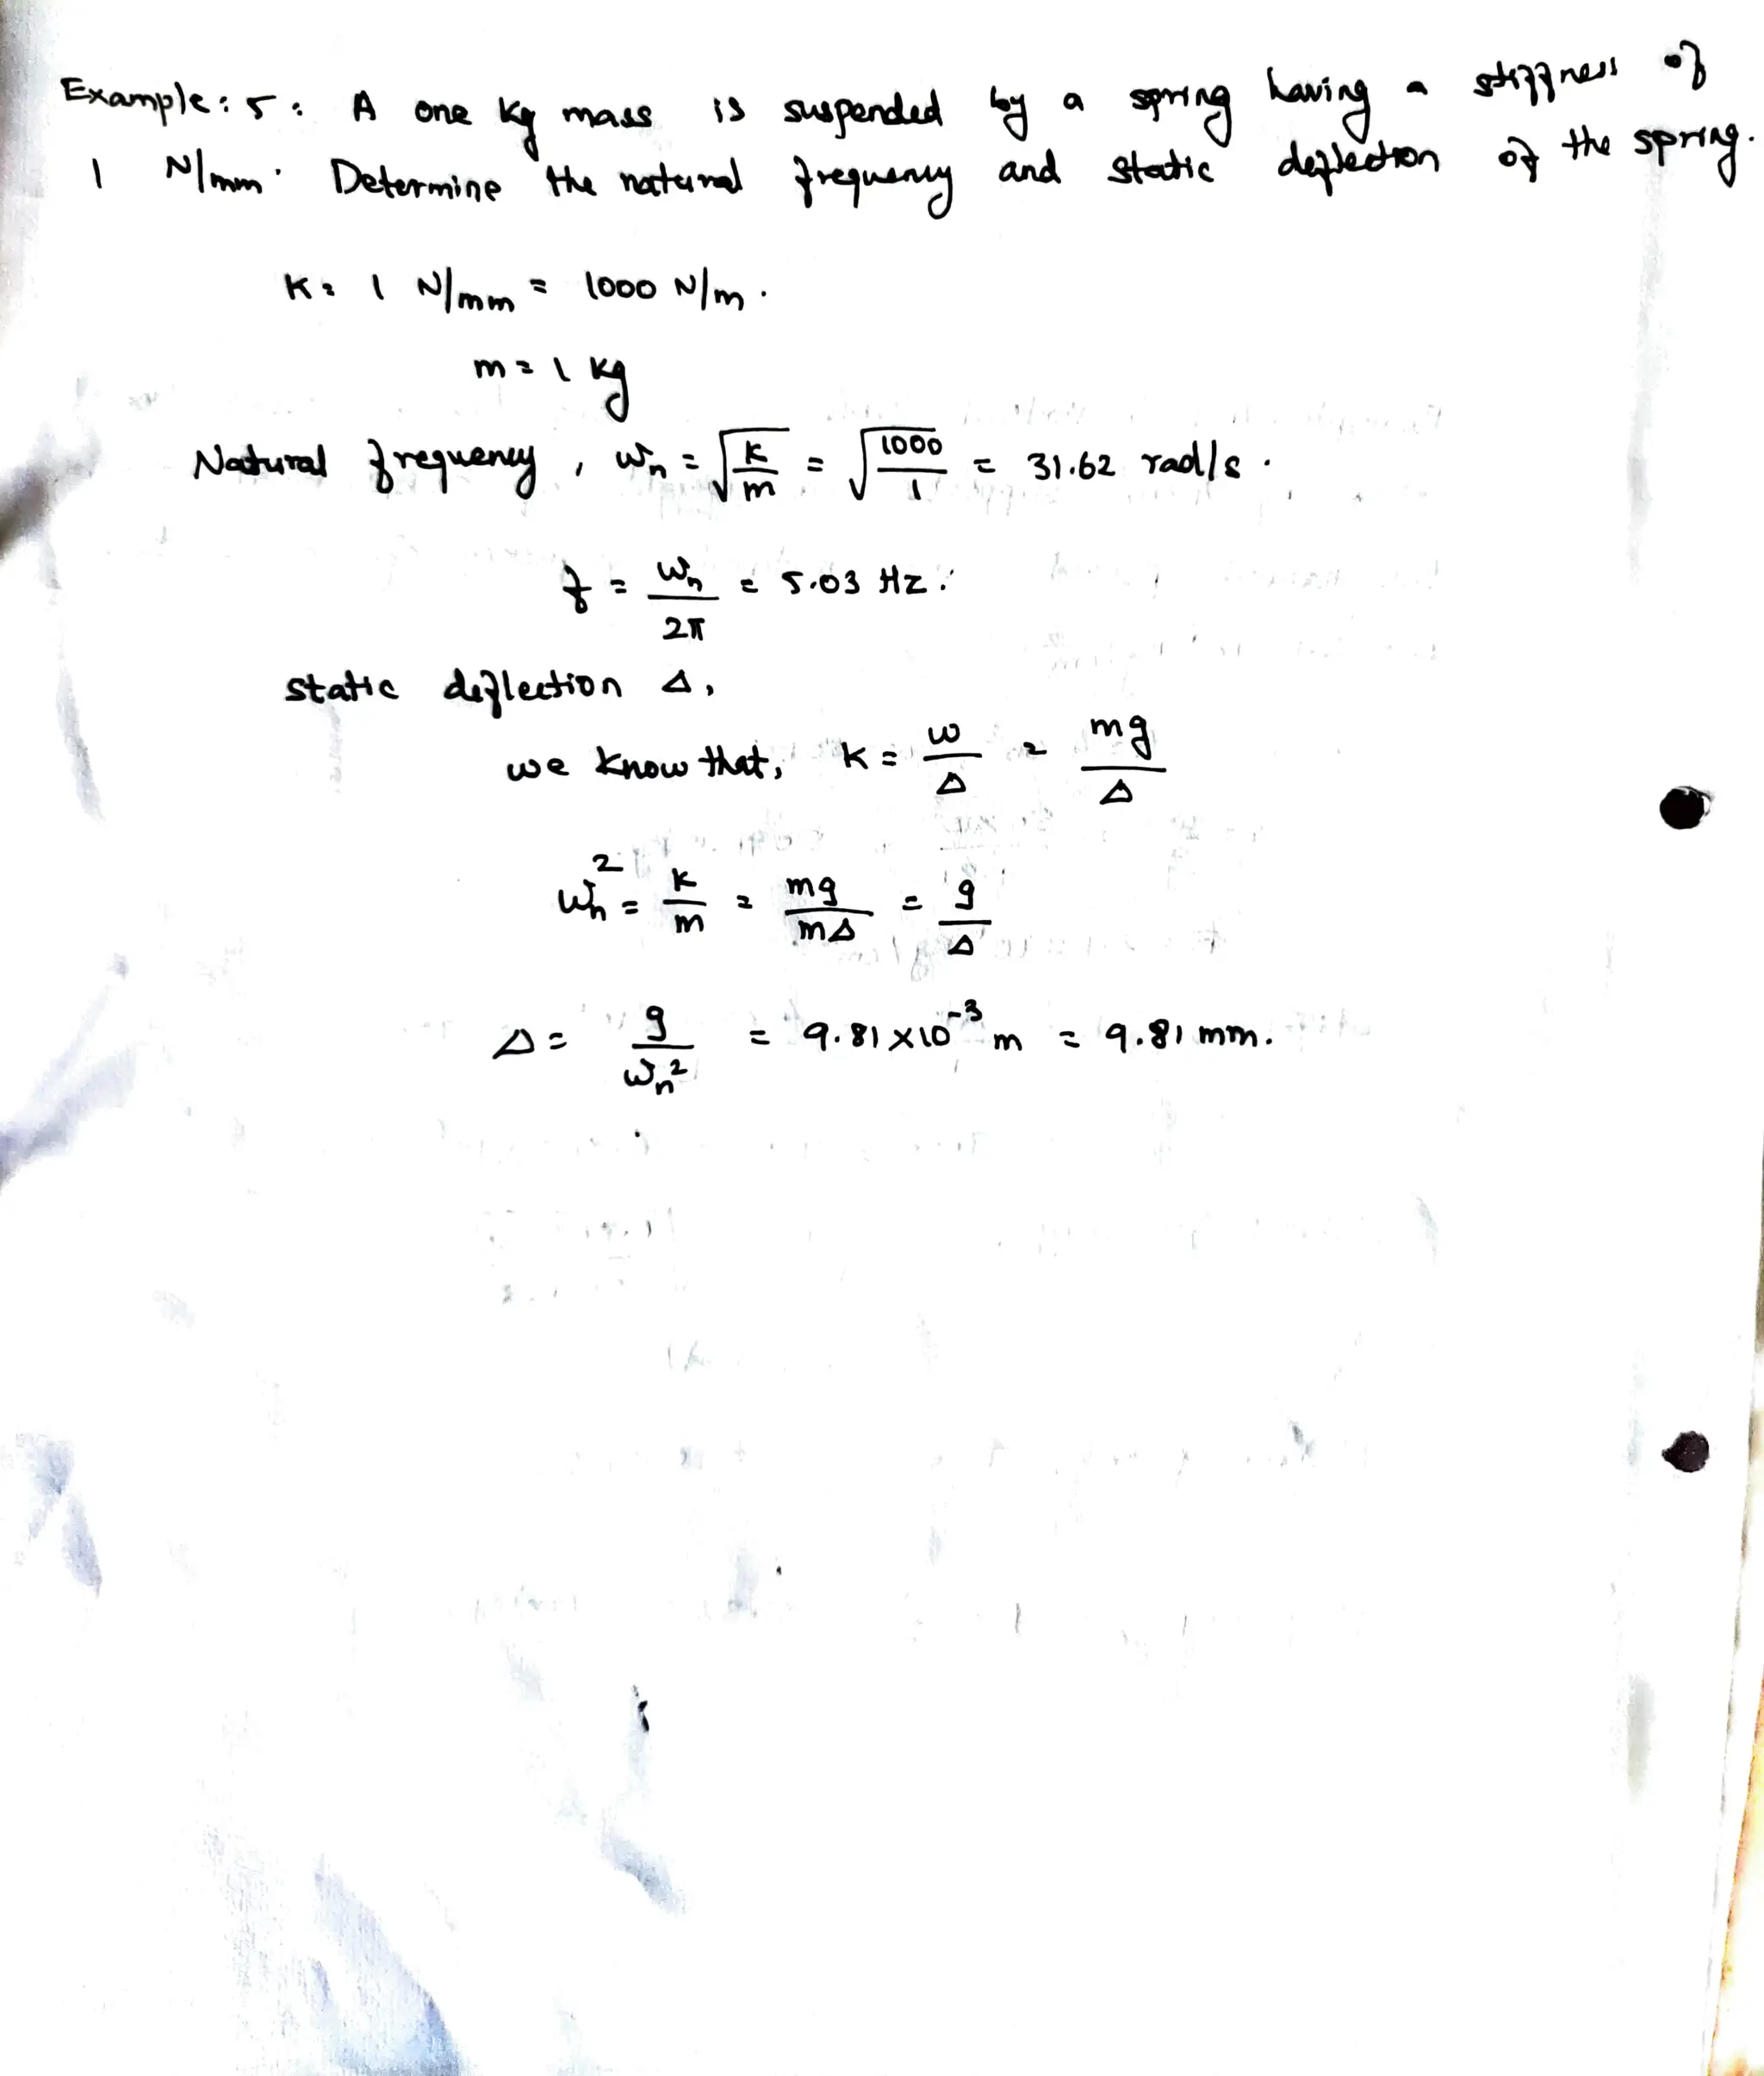 Example: 5: A one kg mass is suspended by a spring having a stiffness of
1 N/mm. Determine the natural frequency and static deflection of the spring.
K = 1 N/mm = 1000 N/m.
m = 1 kg
Natural frequency, ωn = √(k/m) = √(1000/1) = 31.62 rad/s.
f = ωn/2π = 5.03 Hz.
static deflection Δ,
we know that, K = w/Δ = mg/Δ
ωn² = k/m = mg/mΔ = g/Δ
Δ = g/ωn² = 9.81 × 10⁻³ m = 9.81 mm.